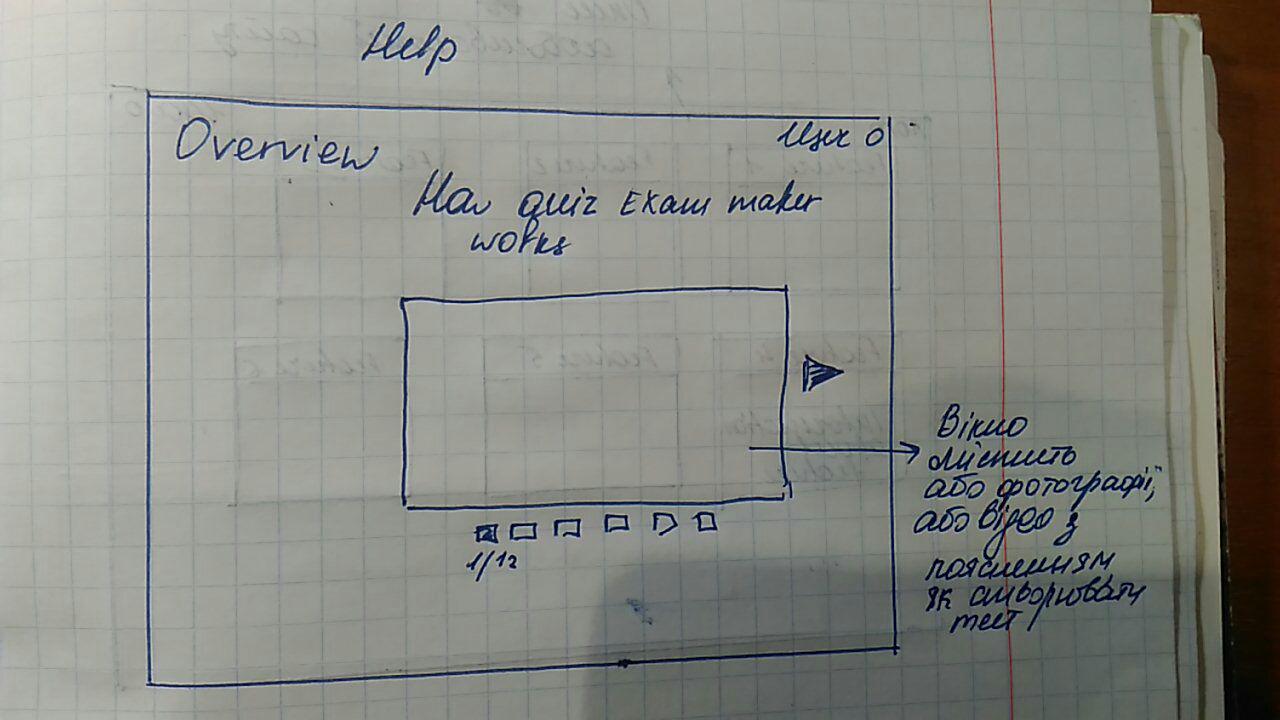 Help
Overview
User O
How quiz Exam maker
works
1/12
Вікно
містить
або фотографії,
або відео з
поясненням
як створювати
тест